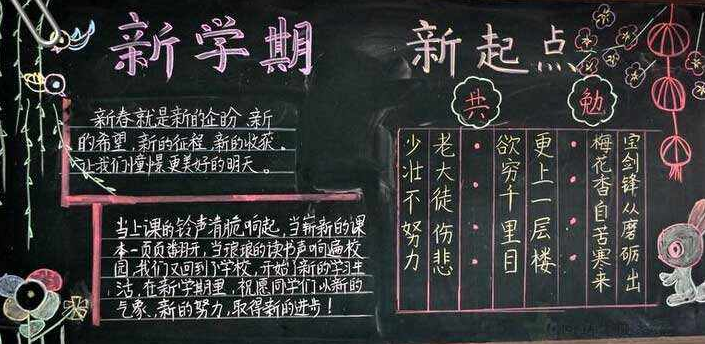 新学期
新起点
新春就是新的企盼、新
的希望、新的征程、新的收获。
让我们憧憬更美好的明天。
当上课的铃声清脆响起,当崭新的课
本一页页翻开,当琅琅的读书声响遍校
园,我们又回到了学校,开始了新的学习生
活,在新学期里,祝愿同学们以新的
气象,新的努力,取得新的进步!
共勉
宝剑锋从磨砺出
梅花香自苦寒来
更上一层楼
欲穷千里目
老大徒伤悲
少壮不努力